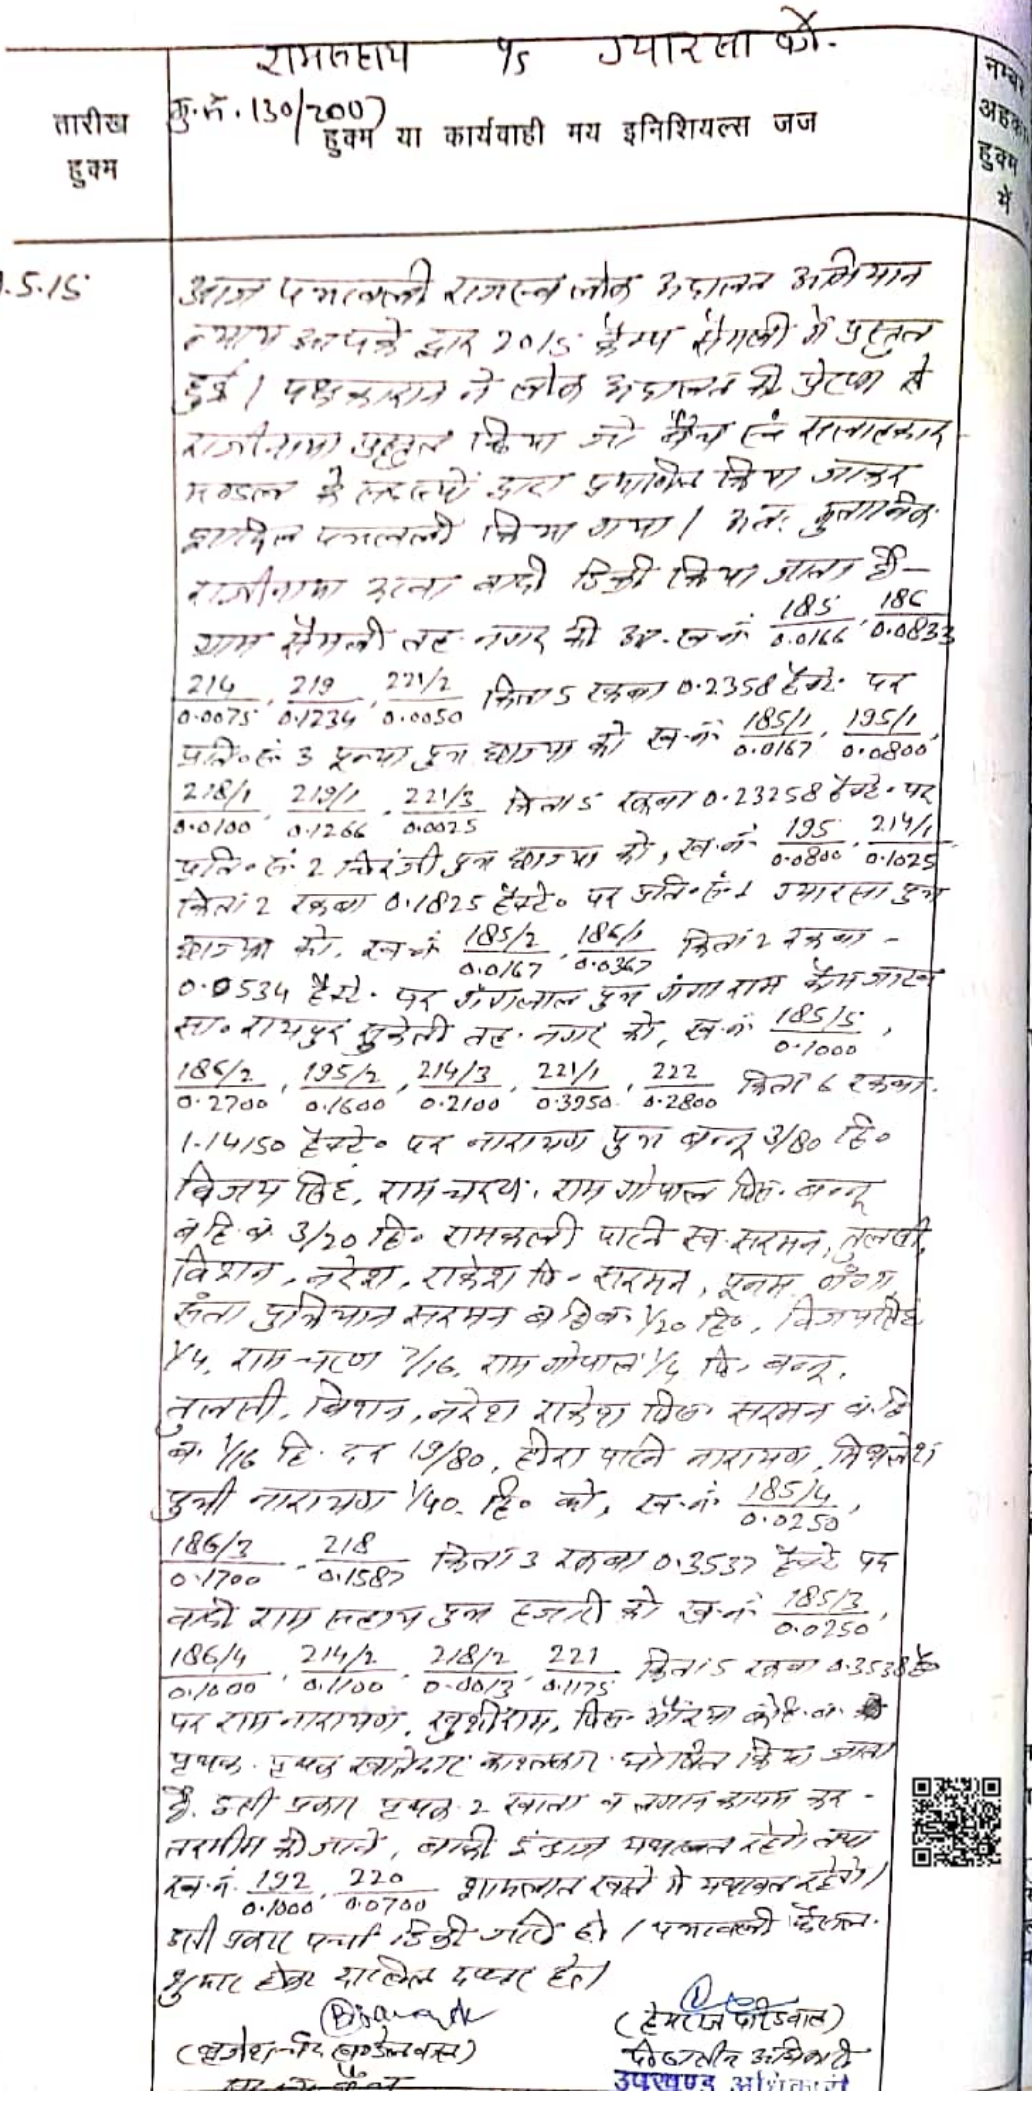 रामसहाय v/s ग्यारसा वगै.
मु.नं. 130/2007
तारीख हुक्म
हुक्म या कार्यवाही मय इनिशियल्स जज
नम्बर अहका हुक्म में
.5.15
आज पत्रावली राजस्व लोक अदालत अभियान
न्याय आपके द्वार 2015 कैम्प सैमली में प्रस्तुत
हुई। पक्षकारान ने लोक अदालत की प्रेरणा से
राजीनामा प्रस्तुत किया जो बैंच एवं सलाहकार
मण्डल के सदस्यों द्वारा प्रमाणित किया जाकर
शामिल पत्रावली किया गया। अतः मुताबिक
राजीनामा दावा वादी डिक्री किया जाता है–
ग्राम सैमली तह. नगर की आ.ख.नं. 185/0.0166, 186/0.0833
214/0.0075, 219/0.1234, 221/2/0.0050 किता 5 रकबा 0.2358 हैक्टे. पर
प्रति.सं. 3 पून्या पुत्र छाज्या को ख.नं. 185/1/0.0167, 195/1/0.0800,
218/1/0.0100, 219/1/0.1266, 221/3/0.0025 किता 5 रकबा 0.23258 हैक्टे. पर
प्रति.सं. 2 चिरंजी पुत्र छाज्या को, ख.नं. 195/0.0800, 214/1/0.1025
किता 2 रकबा 0.1825 हैक्टे. पर प्रति.सं. 1 ग्यारसा पुत्र
छाज्या को, ख.नं. 185/2/0.0167, 186/1/0.0367 किता 2 रकबा -
0.0534 हैक्टे. पर गंगलाल पुत्र गंगाराम कौम जाटव
सा. रायपुर सुकेती तह. नगर को, ख.नं. 185/5/0.1000,
186/2/0.2700, 195/2/0.1600, 214/3/0.2100, 221/1/0.3950, 222/0.2800 किता 6 रकबा
1.14150 हैक्टे. पर नारायण पुत्र बन्नू 3/80 हि.
विजय सिंह, रामचरण, रामगोपाल पि. बन्नू
ब.हि.ब. 3/20 हि. रामकली पत्नि स्व. सरमन, तुलसी,
विशन, नरेश, राकेश पि. सरमन, पूनम, गंगा
पुत्रियान सरमन ब.हि.ब. 1/20 हि., विजयसिंह
1/4, रामचरण 7/16, रामगोपाल 1/4 पि. बन्नू,
तुलसी, विशन, नरेश राकेश पि. सरमन ब.हि.
ब. 1/16 हि. दर 19/80, हीरा पत्नि नारायण, मिथलेश
पुत्री नारायण 1/40 हि. को, ख.नं. 185/4/0.0250,
186/3/0.1700, 218/0.1587 किता 3 रकबा 0.3537 हैक्टे पर
वादी राम सहाय पुत्र हजारी को ख.नं. 185/3/0.0250,
186/4/0.1000, 214/2/0.1100, 218/2/0.0013, 221/0.1175 किता 5 रकबा 0.3538 है.
पर राम नारायण, खुशीराम, पि. को ब.हि.ब.
पृथक-पृथक खातेदार काश्तकार घोषित किया जाता
है. इसी प्रकार पृथक 2 खाता व लगान कायम कर
तरमीम की जावे, बाकी इन्द्राज यथावत रहेंगे तथा
ख.नं. 192/0.1000, 220/0.0700 शामलात खाते में यथावत रहेंगे।
इसी प्रकार पर्चा डिक्री जारी हो। पत्रावली फैसल
शुमार होकर दाखिल दफ्तर हो।
(हेमराज परिडवाल)
पीठासीन अधिकारी
उपखण्ड अधिकारी